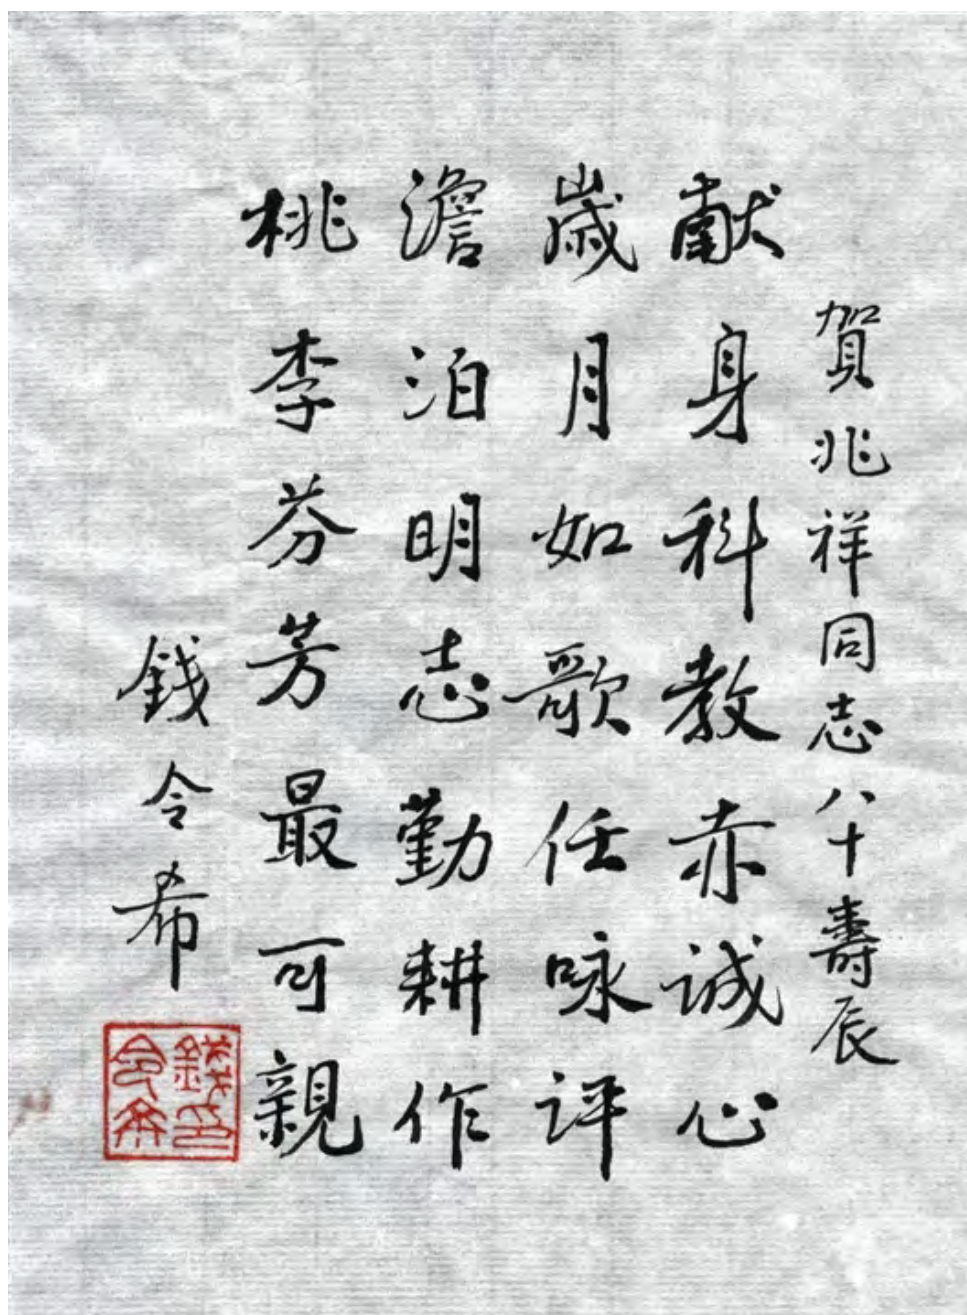 賀兆祥同志八十壽辰
献身科教赤诚心
歲月如歌任咏评
澹泊明志勤耕作
桃李芬芳最可親
錢令希
錢令希印